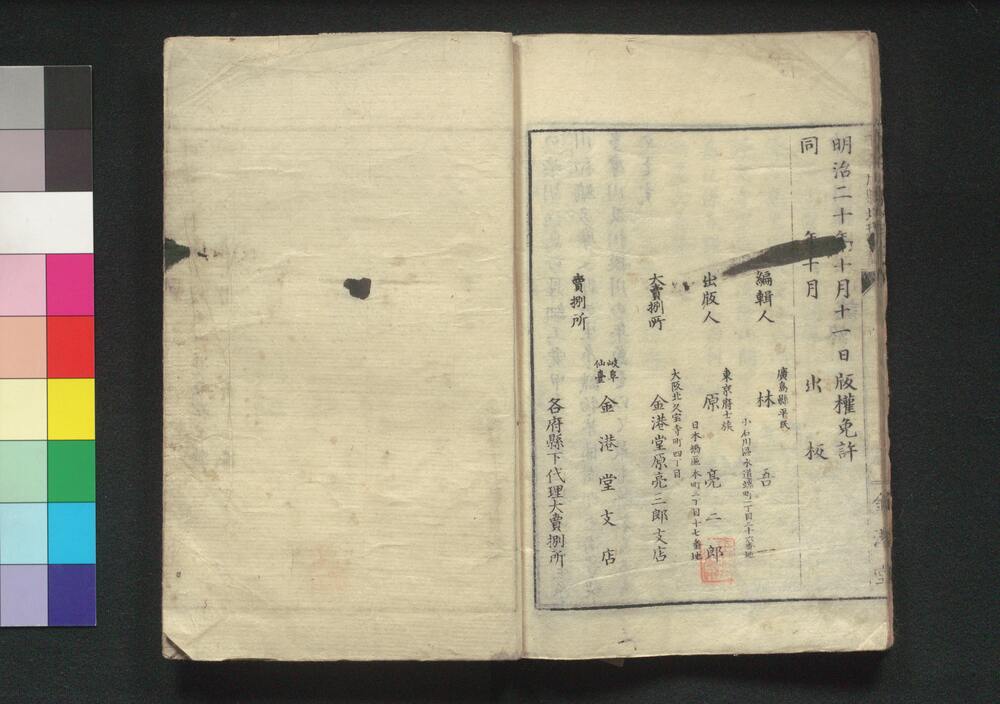 明治二十年十月十一日版權免許
同 年十月 出板
編輯人
廣島縣平民
林 吾
小石川區水道端町二丁目三十六番地
出版人
東京府士族
原 亮三郎
日本橋區本町三丁目十七番地
大賣捌所
大阪北久宝寺町四丁目
金港堂原亮三郎支店
岐阜
仙臺
金港堂支店
賣捌所
各府縣下代理大賣捌所
金港堂